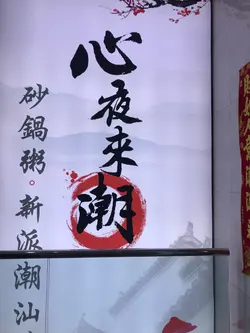 心夜来潮
砂鍋粥。新派潮汕